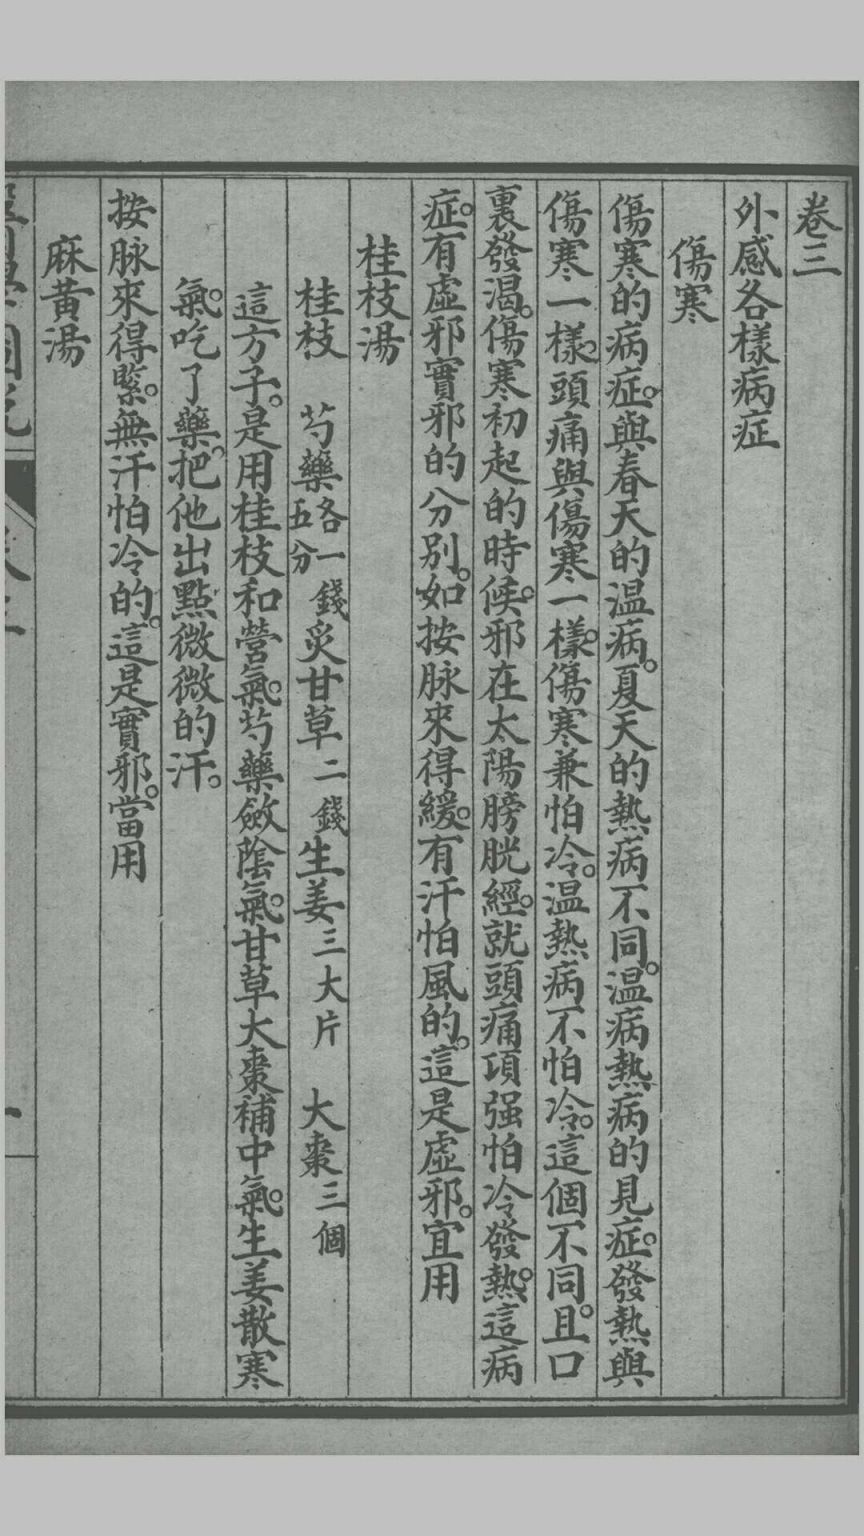 卷三
外感各樣病症
傷寒
傷寒的病症。與春天的温病。夏天的熱病不同。温病熱病的見症。發熱與
傷寒一樣。頭痛與傷寒一樣。傷寒兼怕冷。温熱病不怕冷。這個不同。且口
裏發渴。傷寒初起的時候。邪在太陽膀胱經。就頭痛項强怕冷發熱。這病
症。有虛邪實邪的分別。如按脉來得緩。有汗怕風的。這是虛邪。宜用
桂枝湯
桂枝 芍藥各一錢五分 炙甘草二錢 生姜三大片 大棗三個
這方子。是用桂枝和營氣。芍藥斂陰氣。甘草大棗補中氣。生姜散寒
氣。吃了藥。把他出點微微的汗。
按脉來得緊。無汗怕冷的。這是實邪。當用
麻黄湯